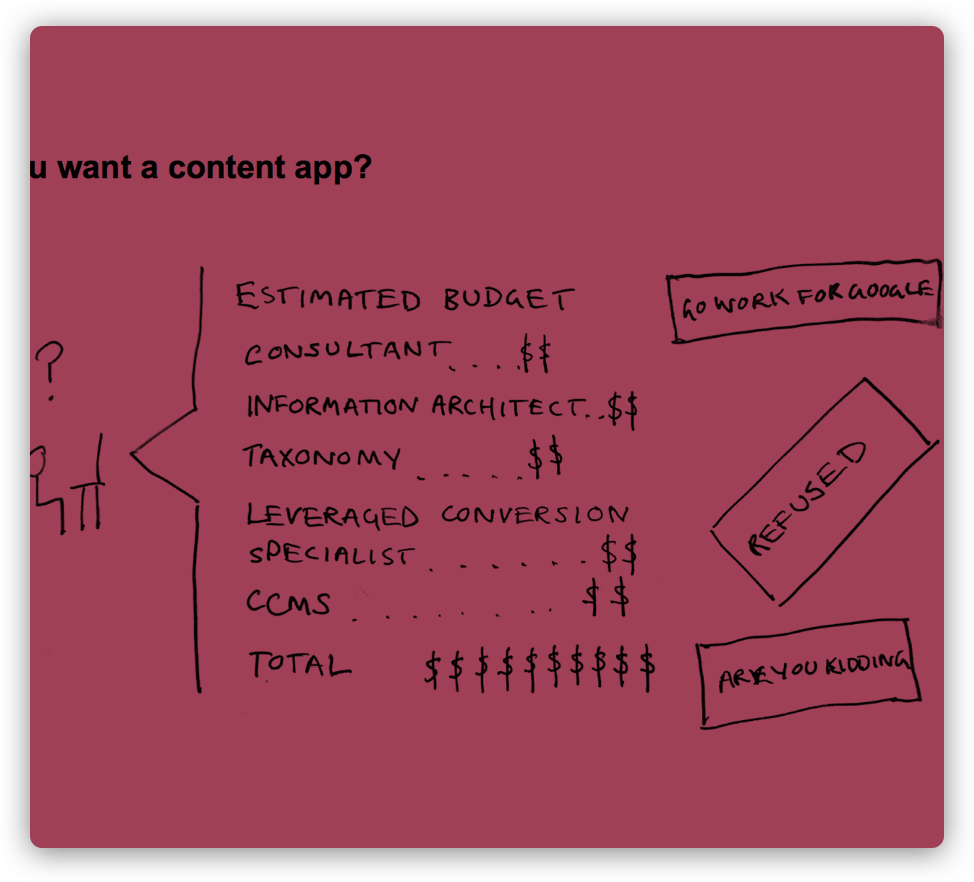 u want a content app?
ESTIMATED BUDGET
CONSULTANT....$$
INFORMATION ARCHITECT..$$
TAXONOMY.....$$
LEVERAGED CONVERSION
SPECIALIST.......$$
CCMS........$$
TOTAL $$$$$$$$$$
?
GO WORK FOR GOOGLE
REFUSED
ARE YOU KIDDING